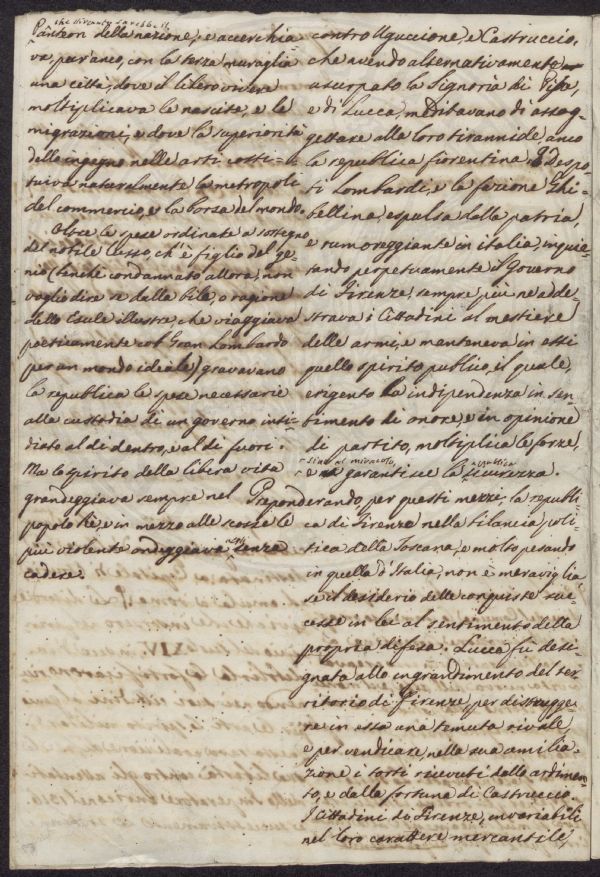 che divenir sarebbe il
Panteon della nazione; e accerchia
va, pur anco, con la terza muraglia
una città, dove il libero vivere
moltiplicava le nascite, e le
migrazioni, e dove la superiorità
dello ingegno nelle arti costi-
tuiva naturalmente la metropoli
del commercio, e la borsa del mondo.
Oltre le spese ordinate a sostegno
del nobile lusso, ch'è figlio del ge-
nio (benchè condannato allora, non
voglio dire se dalla bile, o ragione
dello Esule illustre, che viaggiava
poeticamente col Gran Lombardo
per un mondo ideale) gravavano
la republica le spese necessarie
alla custodia di un governo insi-
diato al di dentro, e al di fuori.
Ma lo spirito della libera vita
grandeggiava sempre nel
popolo Rè, e in mezzo alle scosse le
più violente ondeggiava senza
cadere.
contro Uguccione, e Castruccio,
che avendo alternativamente
usurpato la Signoria di Pisa,
e di Lucca, meditavano di assog-
gettare alle loro tirannide anco
la republica fiorentina. I Despo-
ti Lombardi, e la fazione Ghi-
bellina, espulsa dalla patria,
e rumoreggiante in italia, inquie-
tando perpetuamente il Governo
di Firenze, sempre più ne adde-
strava i Cittadini al mestiere
delle armi, e manteneva in essi
quello spirito publico, il quale,
erigento la indipendenza in sen-
timento di onore, e in opinione
di partito, moltiplica le forze,
e garantisce la sicurezza.
Preponderando, per questi mezzi, la republi-
ca di Firenze nella bilancia poli-
tica della Toscana, e molto pesando
in quella d'Italia, non è meraviglia
se il desiderio delle conquiste suc-
cesse in lei al sentimento della
propria difesa. Lucca fù desi-
gnata allo ingrandimento del ter
ritorio di Firenze, per distrugge-
re in essa una temuta rivale,
e per vendicare, nella sua umilia-
zione i torti ricevuti dallo ardimen-
to, e dalla fortuna di Castruccio
I Cittadini di Firenze, invariabili
nel loro carattere mercantile,